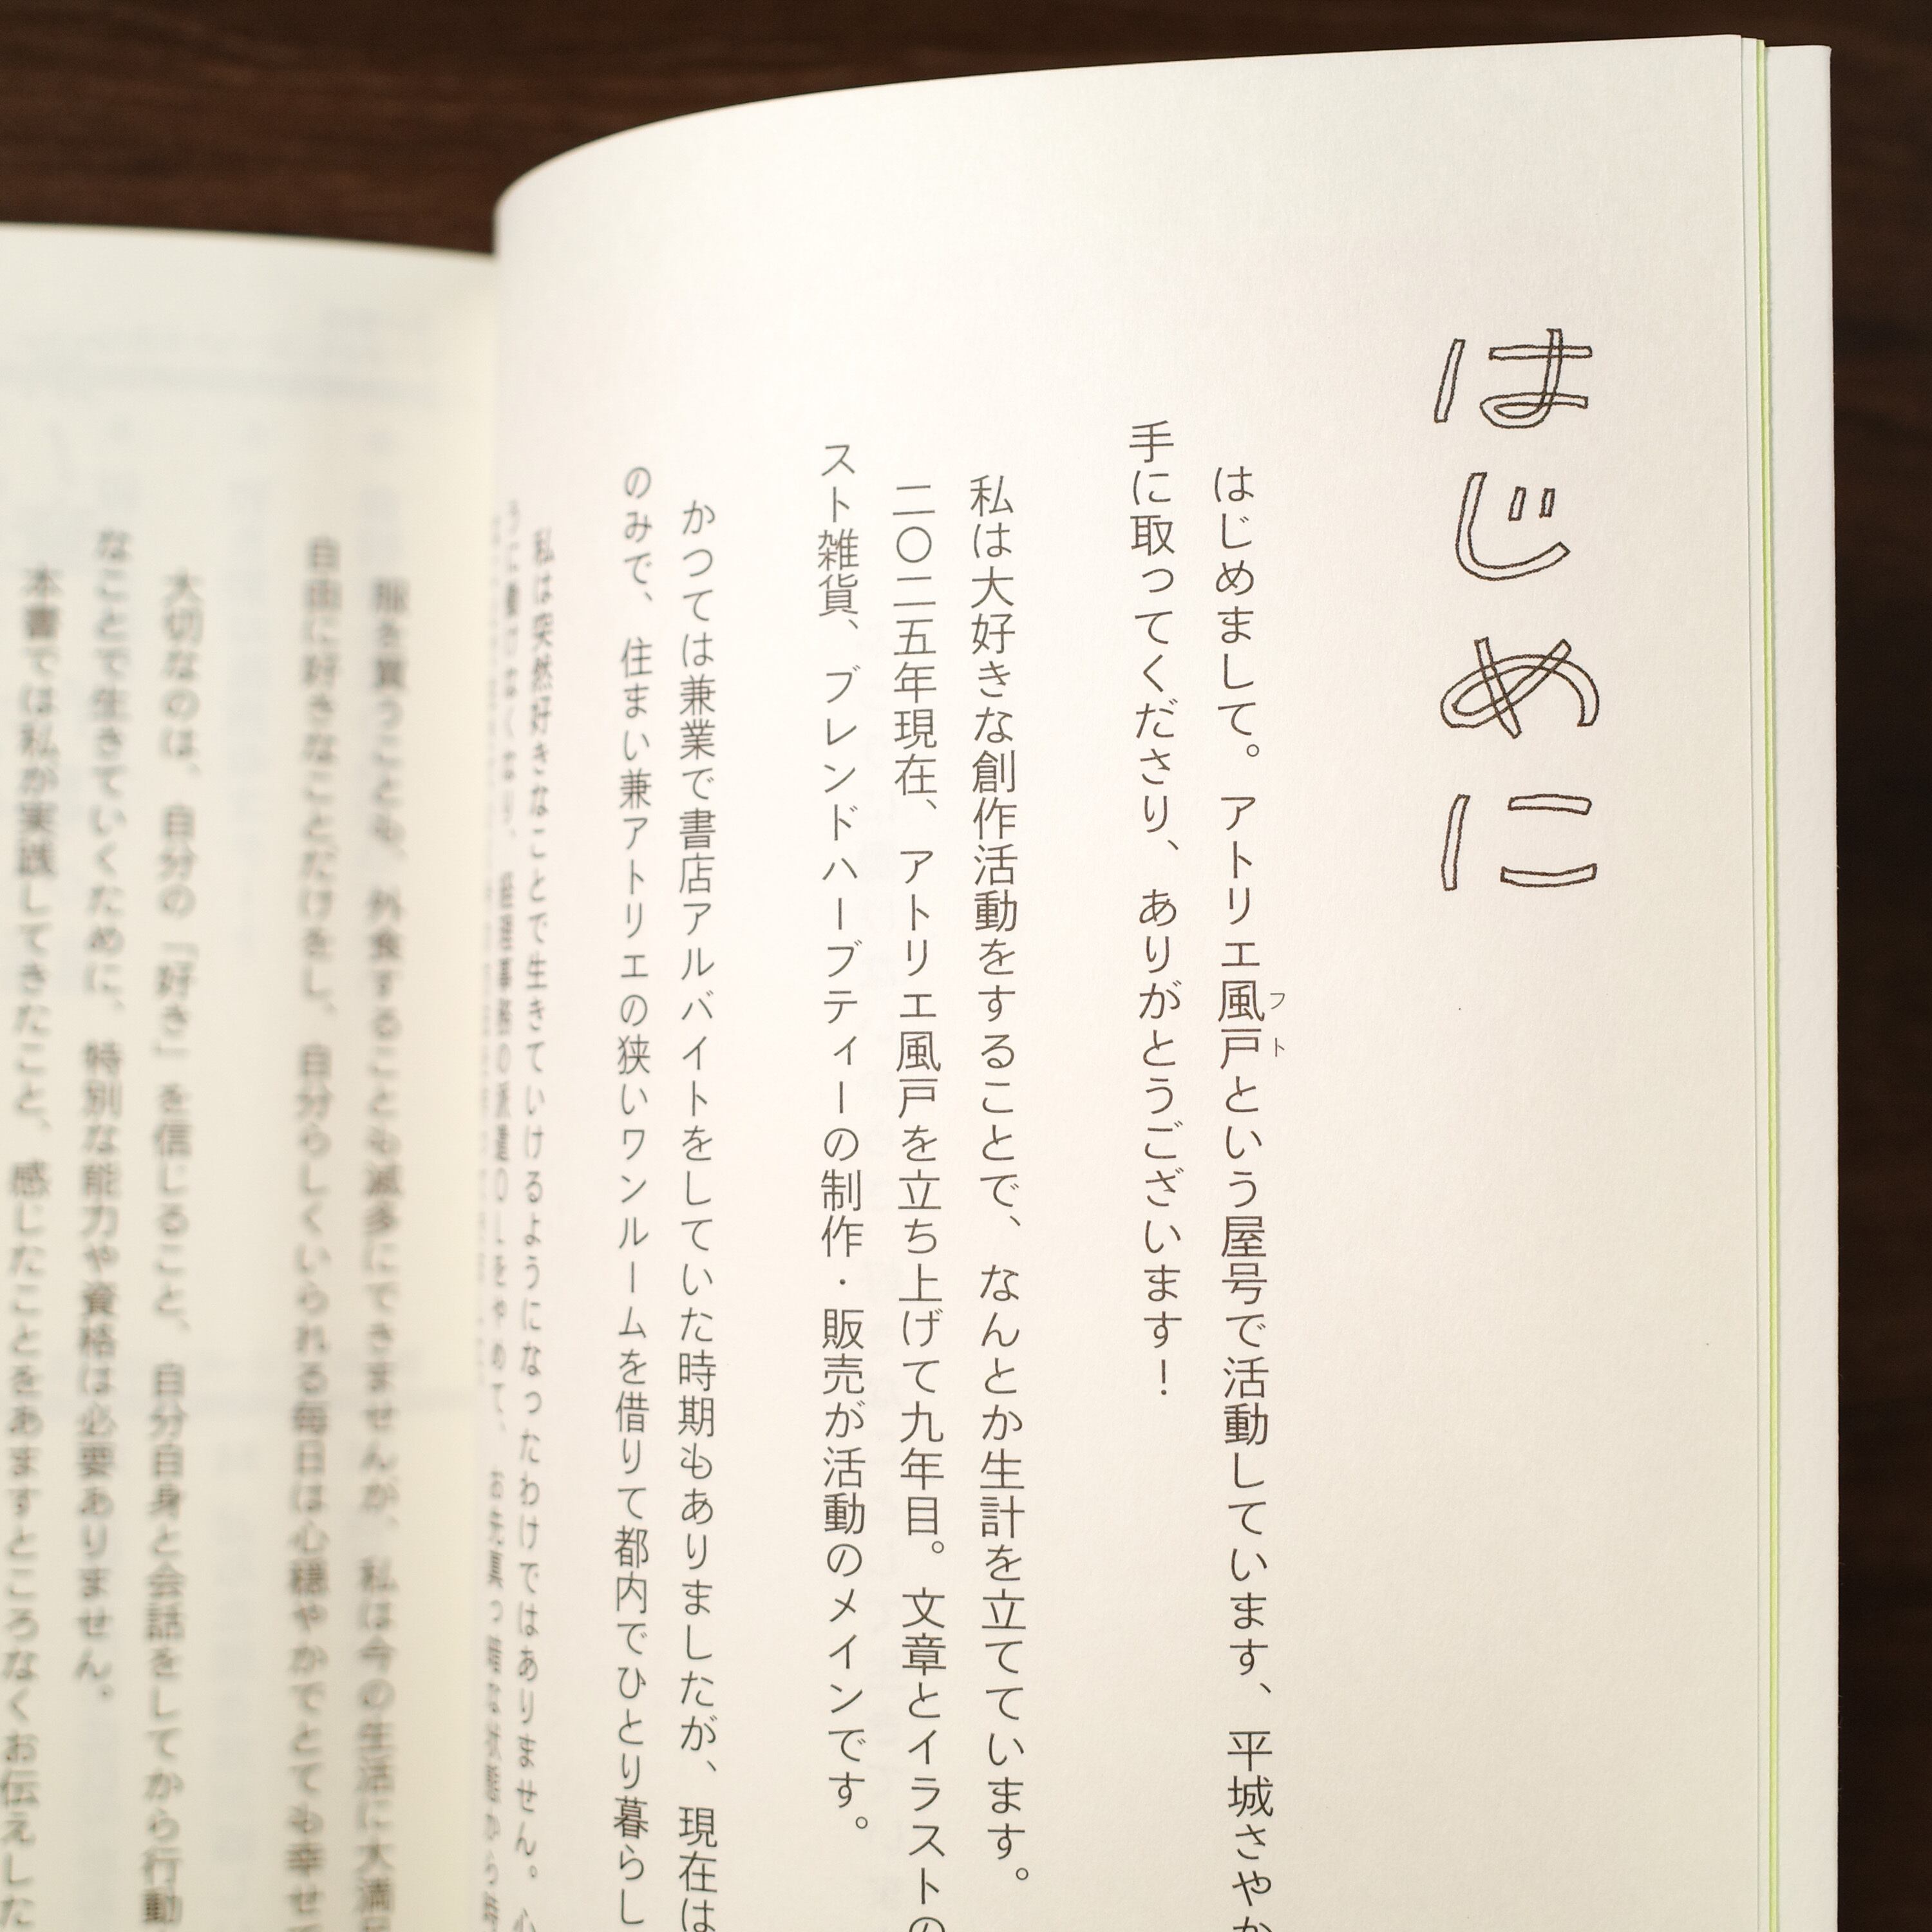 はじめに
はじめまして。アトリエ風戸という屋号で活動しています、平城さやか
フト
手に取ってくださり、ありがとうございます！
私は大好きな創作活動をすることで、なんとか生計を立てています。
二〇二五年現在、アトリエ風戸を立ち上げて九年目。文章とイラストの
スト雑貨、ブレンドハーブティーの制作・販売が活動のメインです。
かつては兼業で書店アルバイトをしていた時期もありましたが、現在は
のみで、住まい兼アトリエの狭いワンルームを借りて都内でひとり暮らし
私は突然好きなことで生きていけるようになったわけではありません。心
服を買うことも、外食することも滅多にできませんが、私は今の生活に大満足
自由に好きなことだけをし、自分らしくいられる毎日は心穏やかでとても幸せで
大切なのは、自分の「好き」を信じること、自分自身と会話をしてから行動
なことで生きていくために、特別な能力や資格は必要ありません。
本書では私が実践してきたこと、感じたことをあますところなくお伝えした